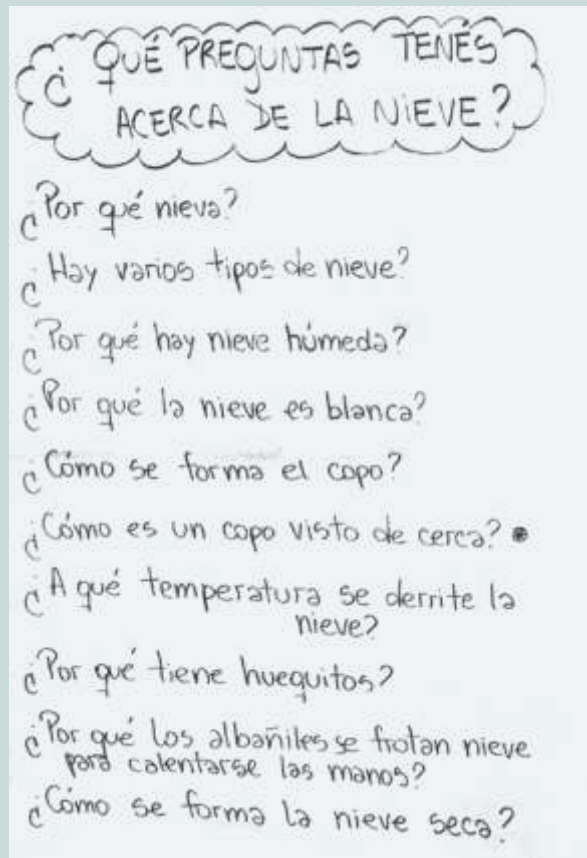 ¿QUÉ PREGUNTAS TENÉS
ACERCA DE LA NIEVE?
¿Por qué nieva?
¿Hay varios tipos de nieve?
¿Por qué hay nieve húmeda?
¿Por qué la nieve es blanca?
¿Cómo se forma el copo?
¿Cómo es un copo visto de cerca?
¿A qué temperatura se derrite la
nieve?
¿Por qué tiene huequitos?
¿Por qué los albañiles se frotan nieve
para calentarse las manos?
¿Cómo se forma la nieve seca?